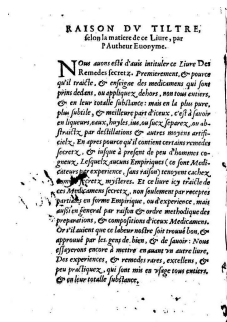 RAISON DV TILTRE,
selon la matiere de ce Liure, par
l'Autheur Euonyme.
Nous auons esté d'auis intituler ce Liure Des
Remedes secretz. Premierement, & pource
qu'il traicte, & enseigne des medicamens qui sont
prins dedans, ou appliquez dehors, non tous entiers,
& en leur totalle substance: mais en la plus pure,
plus subtile, & meilleure part d'iceux, c'est à sauoir
en liqueurs, eaux, huyles, ius, ou sucz separez, ou ab-
straictz par destillations & autres moyens artifi-
cielz. En apres pource qu'il contient certains remedes
secretz, & iusque à present de peu d'hommes co-
gneuz. Lesquelz aucuns Empiriques (ce sont Medi-
cateurs par experience, sans raison) tenoyent cachez,
secretz, mysteres. Et ce liure icy traicte de
ces Medicamens secretz, non seulement par receptes
en forme Empirique, ou d'experience, mais
aussi en general par raison & ordre methodique des
preparations, & compositions d'iceux Medicamens.
Or s'il auient que ce labeur nostre soit trouué bon, &
approuué par les gens de bien, & de sauoir: Nous
essayerons encore à mettre en auant vn autre liure,
Des experiences, & remedes rares, excellens, &
peu practiquez, qui sont mis en vsage tous entiers,
& en leur totalle substance.